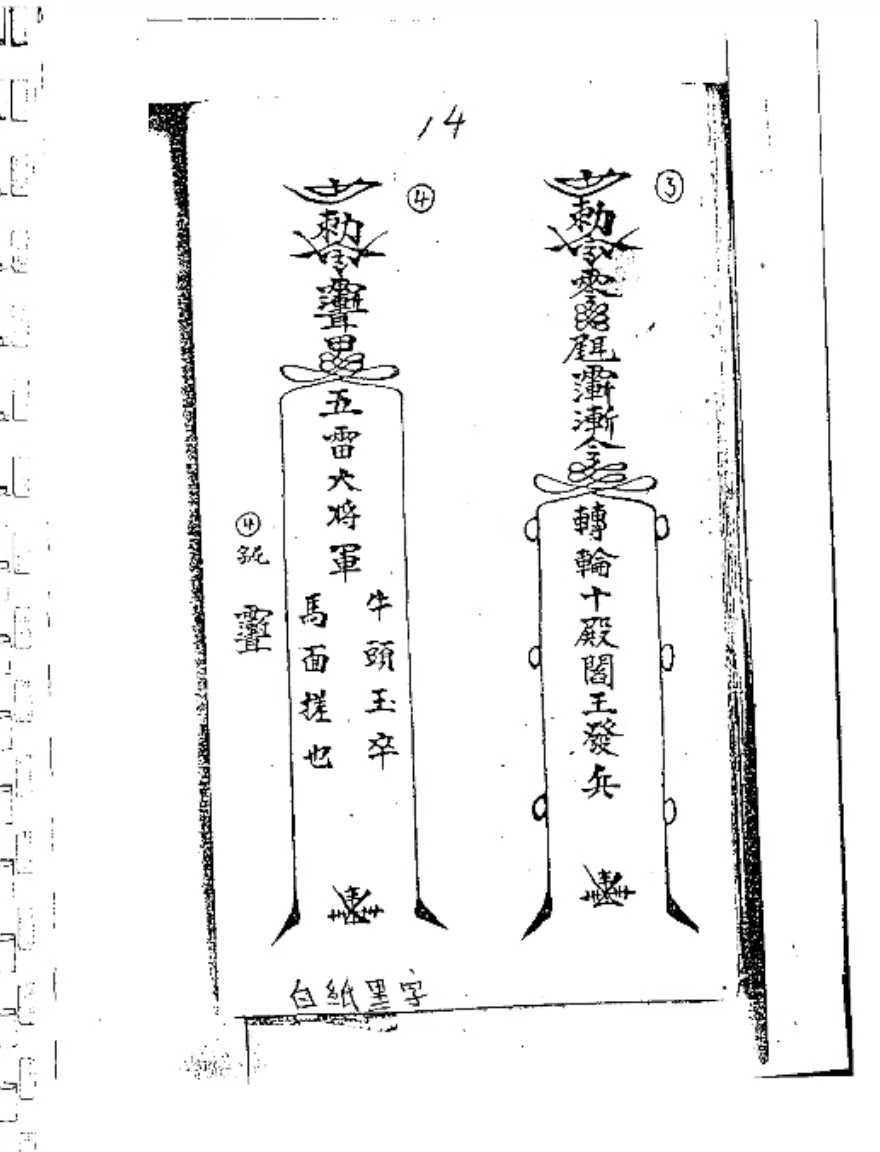 14
③
勅令
轉輪十殿閻王發兵
④
勅令
五雷大將軍
牛頭玉卒
馬面搓也
④
白紙黑字